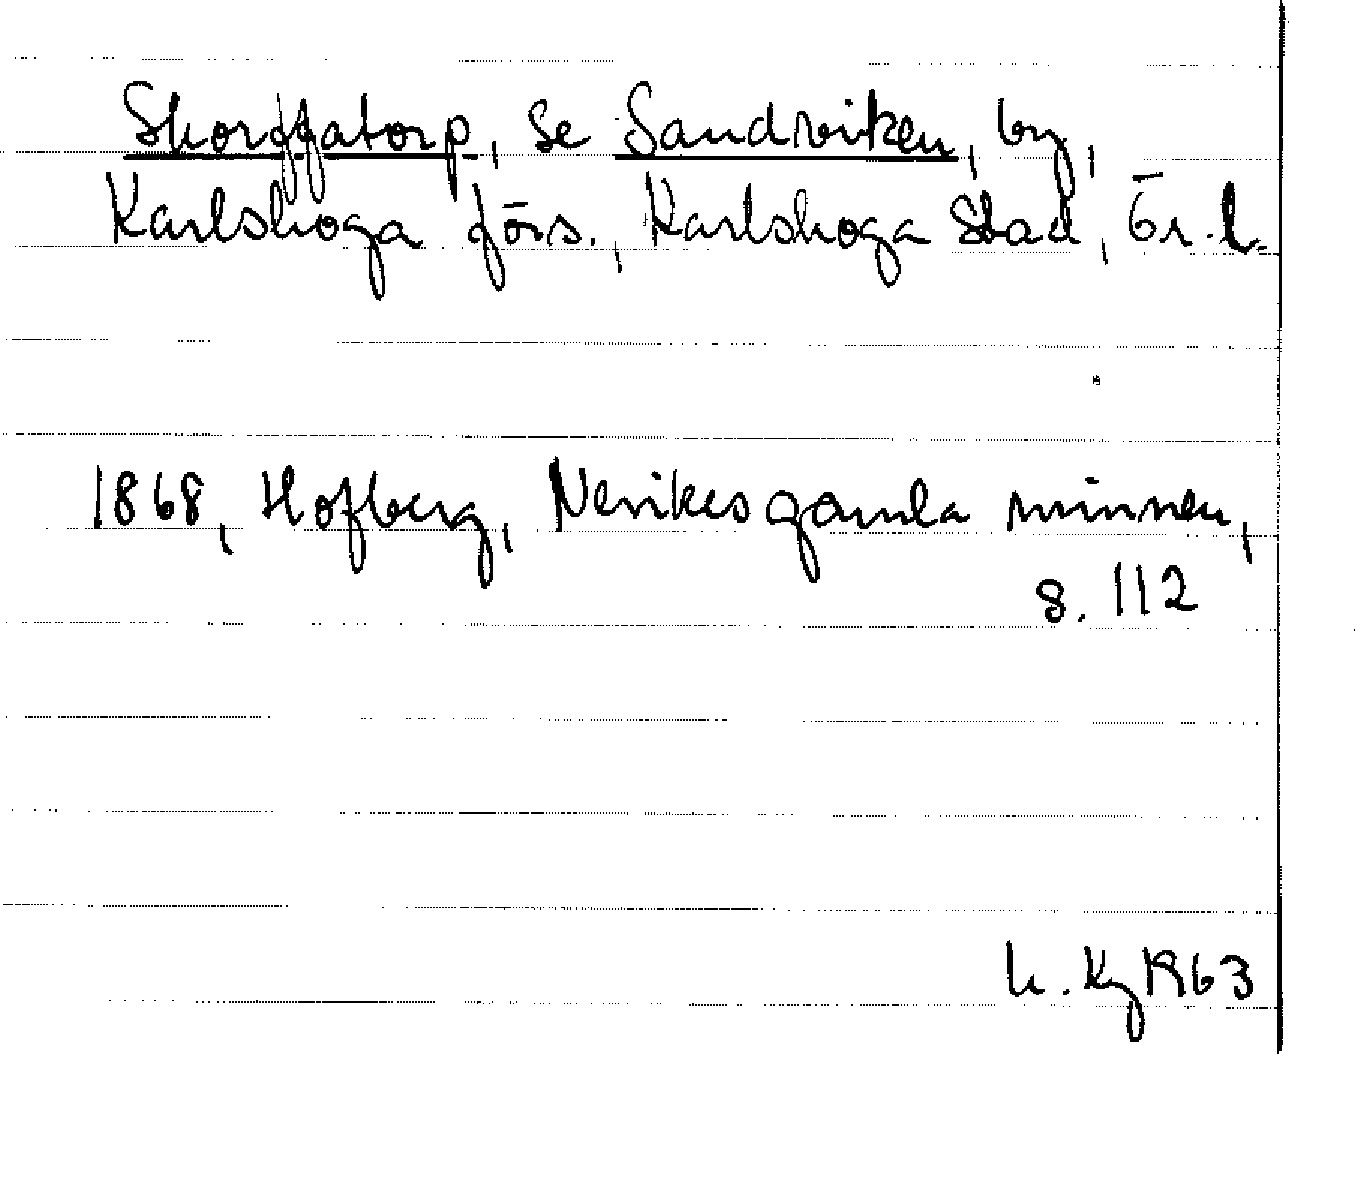 Skorffatorp, se Sandviken, by,
Karlskoga förs., Karlskoga stad, Ör. l.
1868, Hofberg, Nerikes gamla minnen,
s. 112
1963